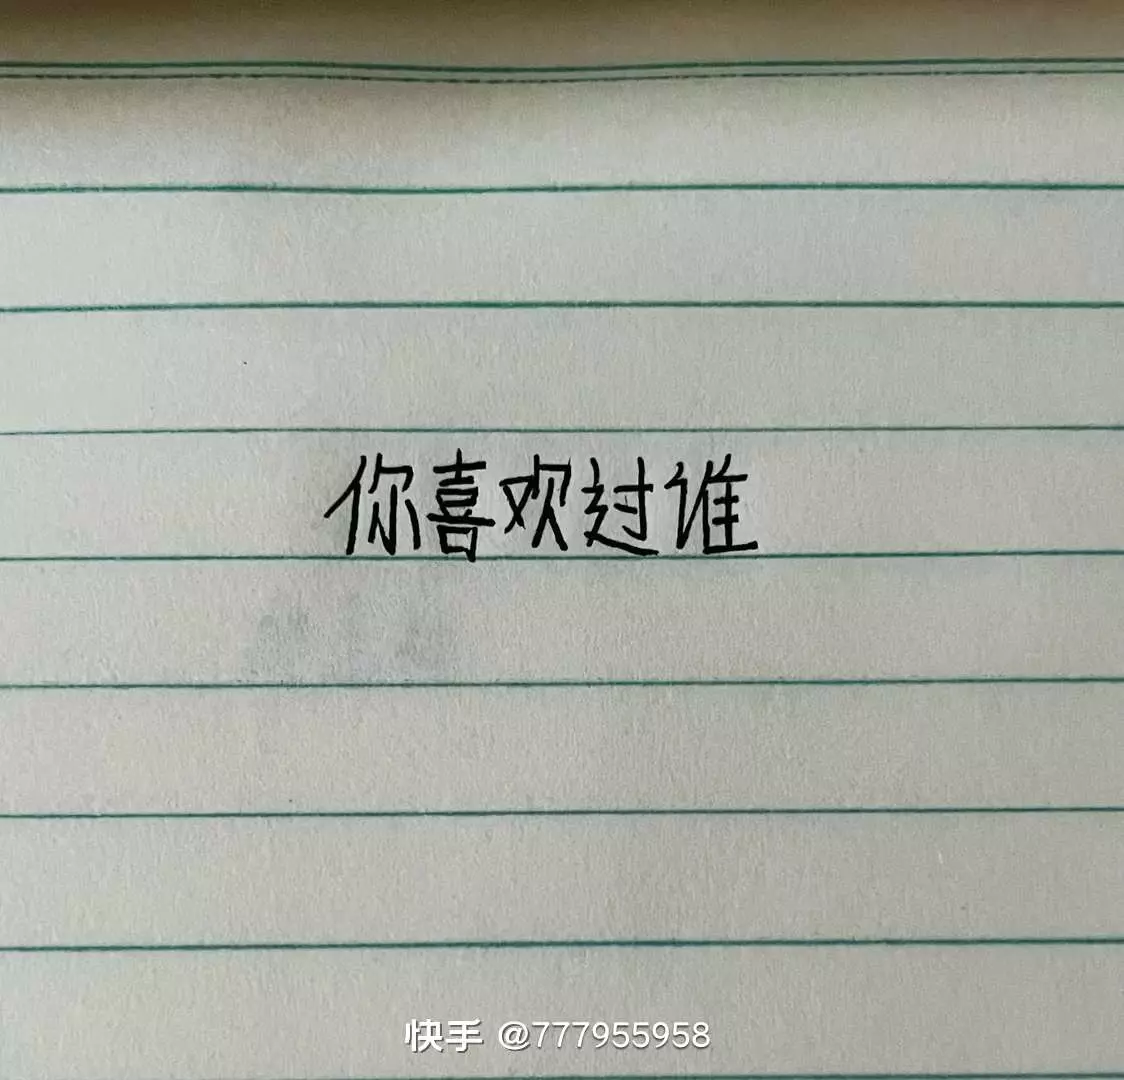 你喜欢过谁
快手 @777955958